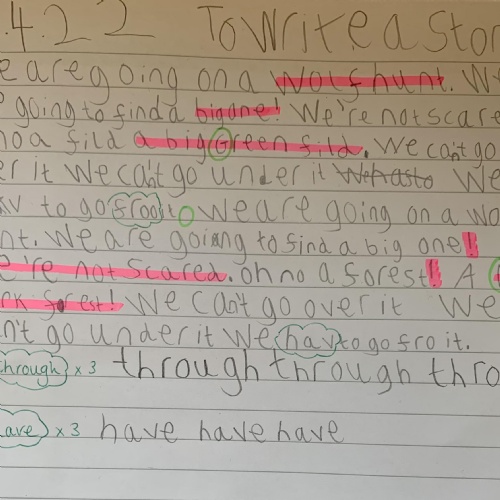 .4.22 To Write a Stor
e are going on a wolfhunt. W
going to find a big one! We're not scare
no a fild a big Green fild. We can't go
er it We can't go under it We hasto We
to go froo it We are going on a wo
nt. We are going to find a big one!
e're not scared. oh no a forest! A
rk forest! We can't go over it We
n't go under it We hav to go fro it.
through x 3 through through thro
ave x 3 have have have